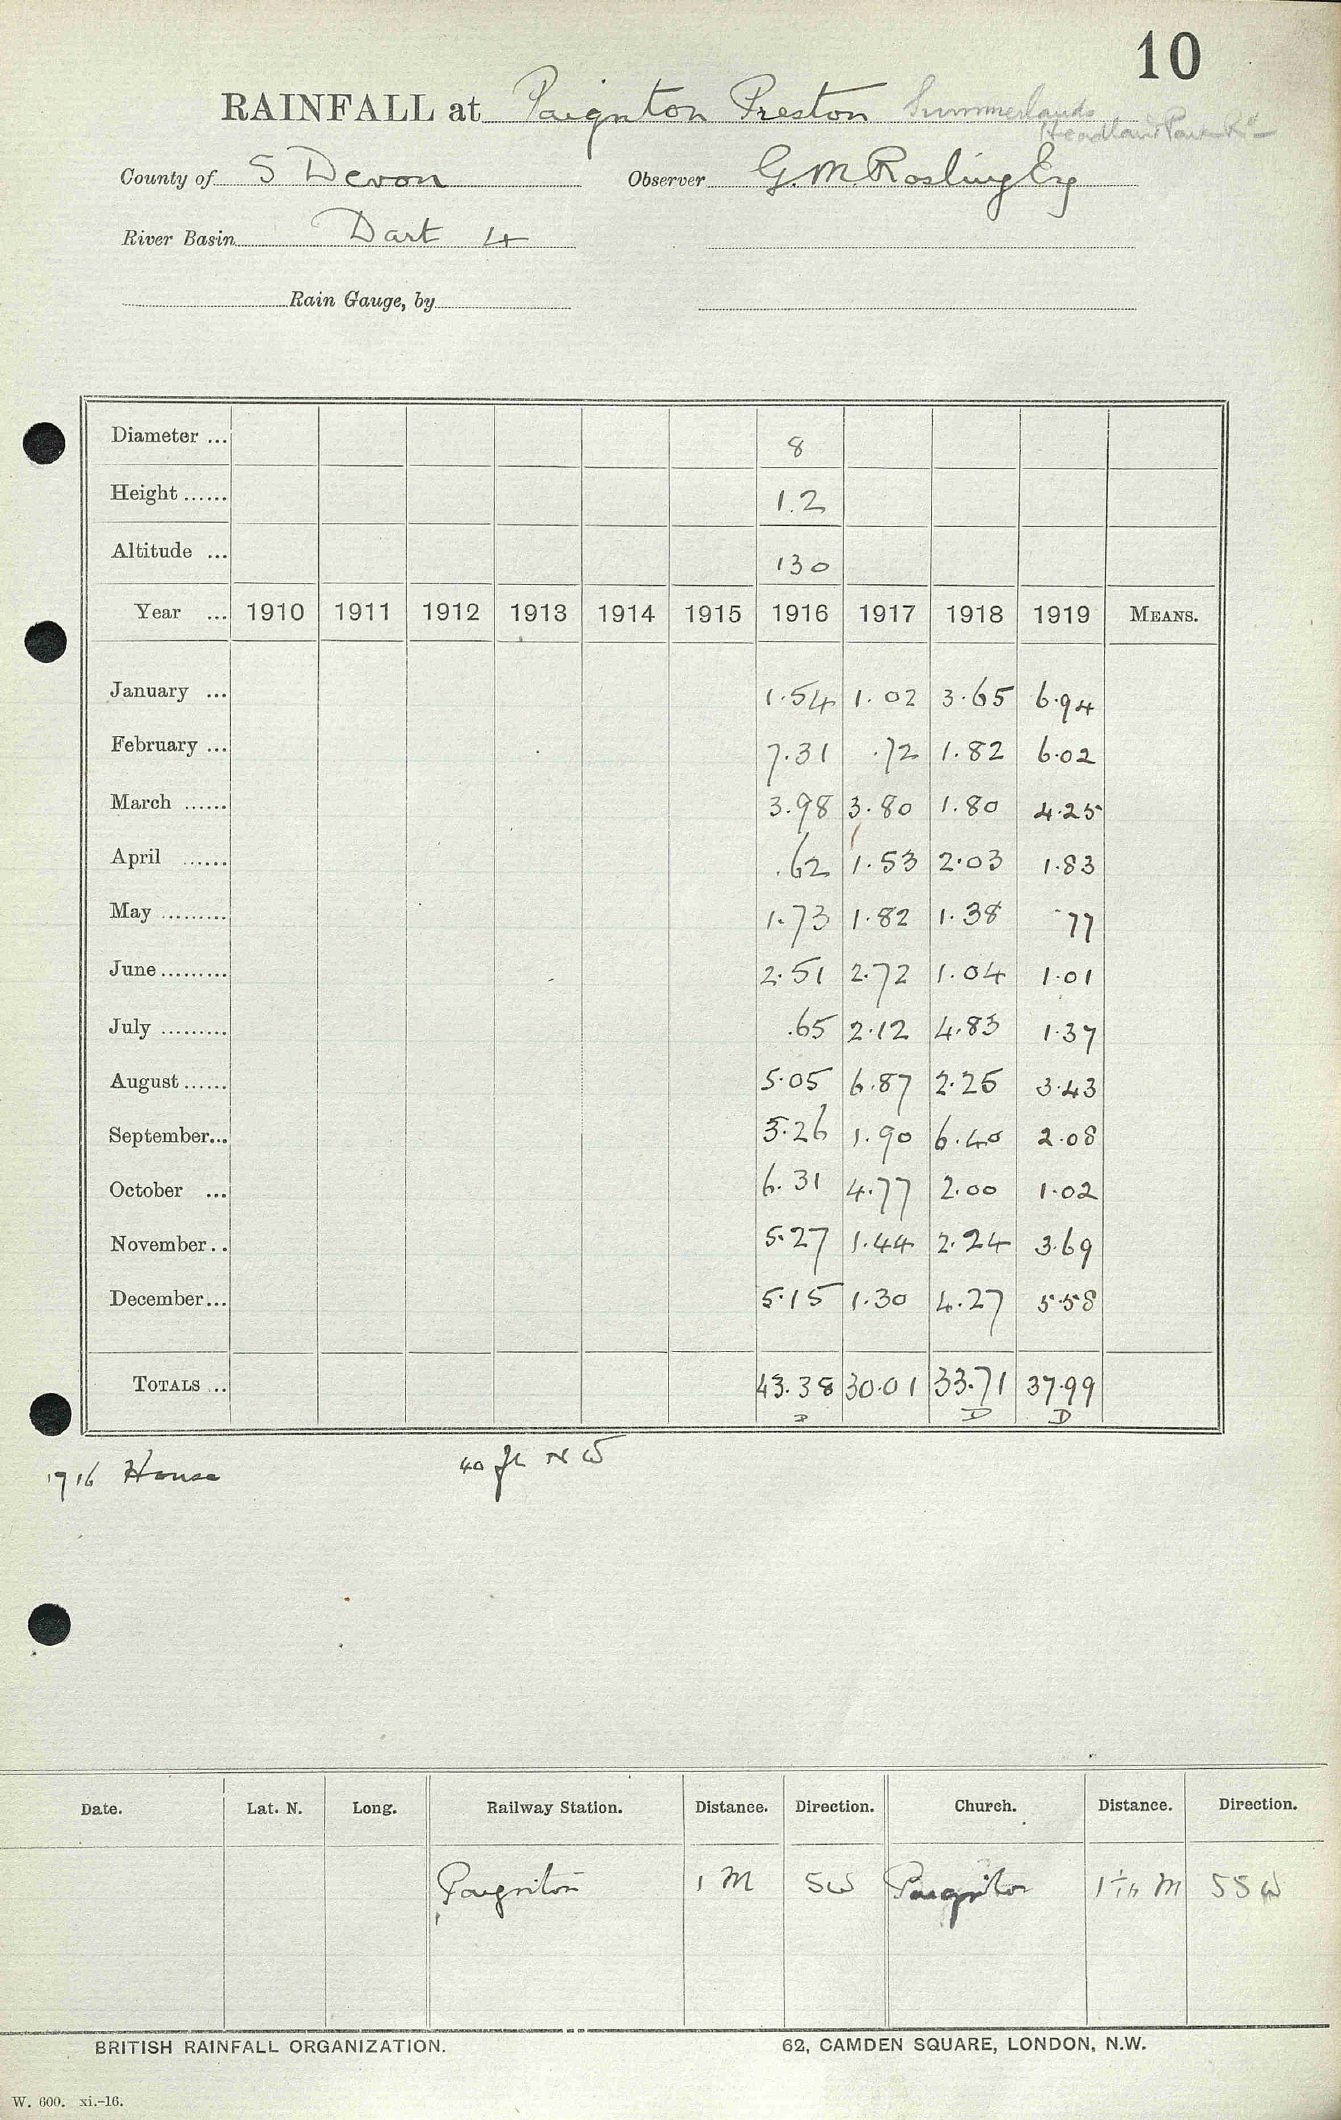 10
RAINFALL at Paignton Preston Summerlands
Headland Park Rd
County of S Devon Observer G. M. Rosling Esq
River Basin Dart 4
Rain Gauge, by
Diameter ... 8
Height ...... 1.2
Altitude ... 130
Year ... 1910 1911 1912 1913 1914 1915 1916 1917 1918 1919 MEANS.
January ... 1.54 1.02 3.65 6.94
February ... 7.31 .72 1.82 6.02
March ...... 3.98 3.80 1.80 4.25
April ...... .62 1.53 2.03 1.83
May ......... 1.73 1.82 1.38 .77
June ......... 2.51 2.72 1.04 1.01
July ......... .65 2.12 4.83 1.37
August ...... 5.05 6.87 2.25 3.43
September... 3.26 1.90 6.40 2.08
October ... 6.31 4.77 2.00 1.02
November .. 5.27 1.44 2.24 3.69
December... 5.15 1.30 4.27 5.58
TOTALS ... 43.38 30.01 33.71 37.99
D D D
1916 House 40 ft NW
Date. Lat. N. Long. Railway Station. Distance. Direction. Church. Distance. Direction.
Paignton 1 M SW Paignton M SSW
BRITISH RAINFALL ORGANIZATION. 62, CAMDEN SQUARE, LONDON, N.W.
W. 600. xi.-16.